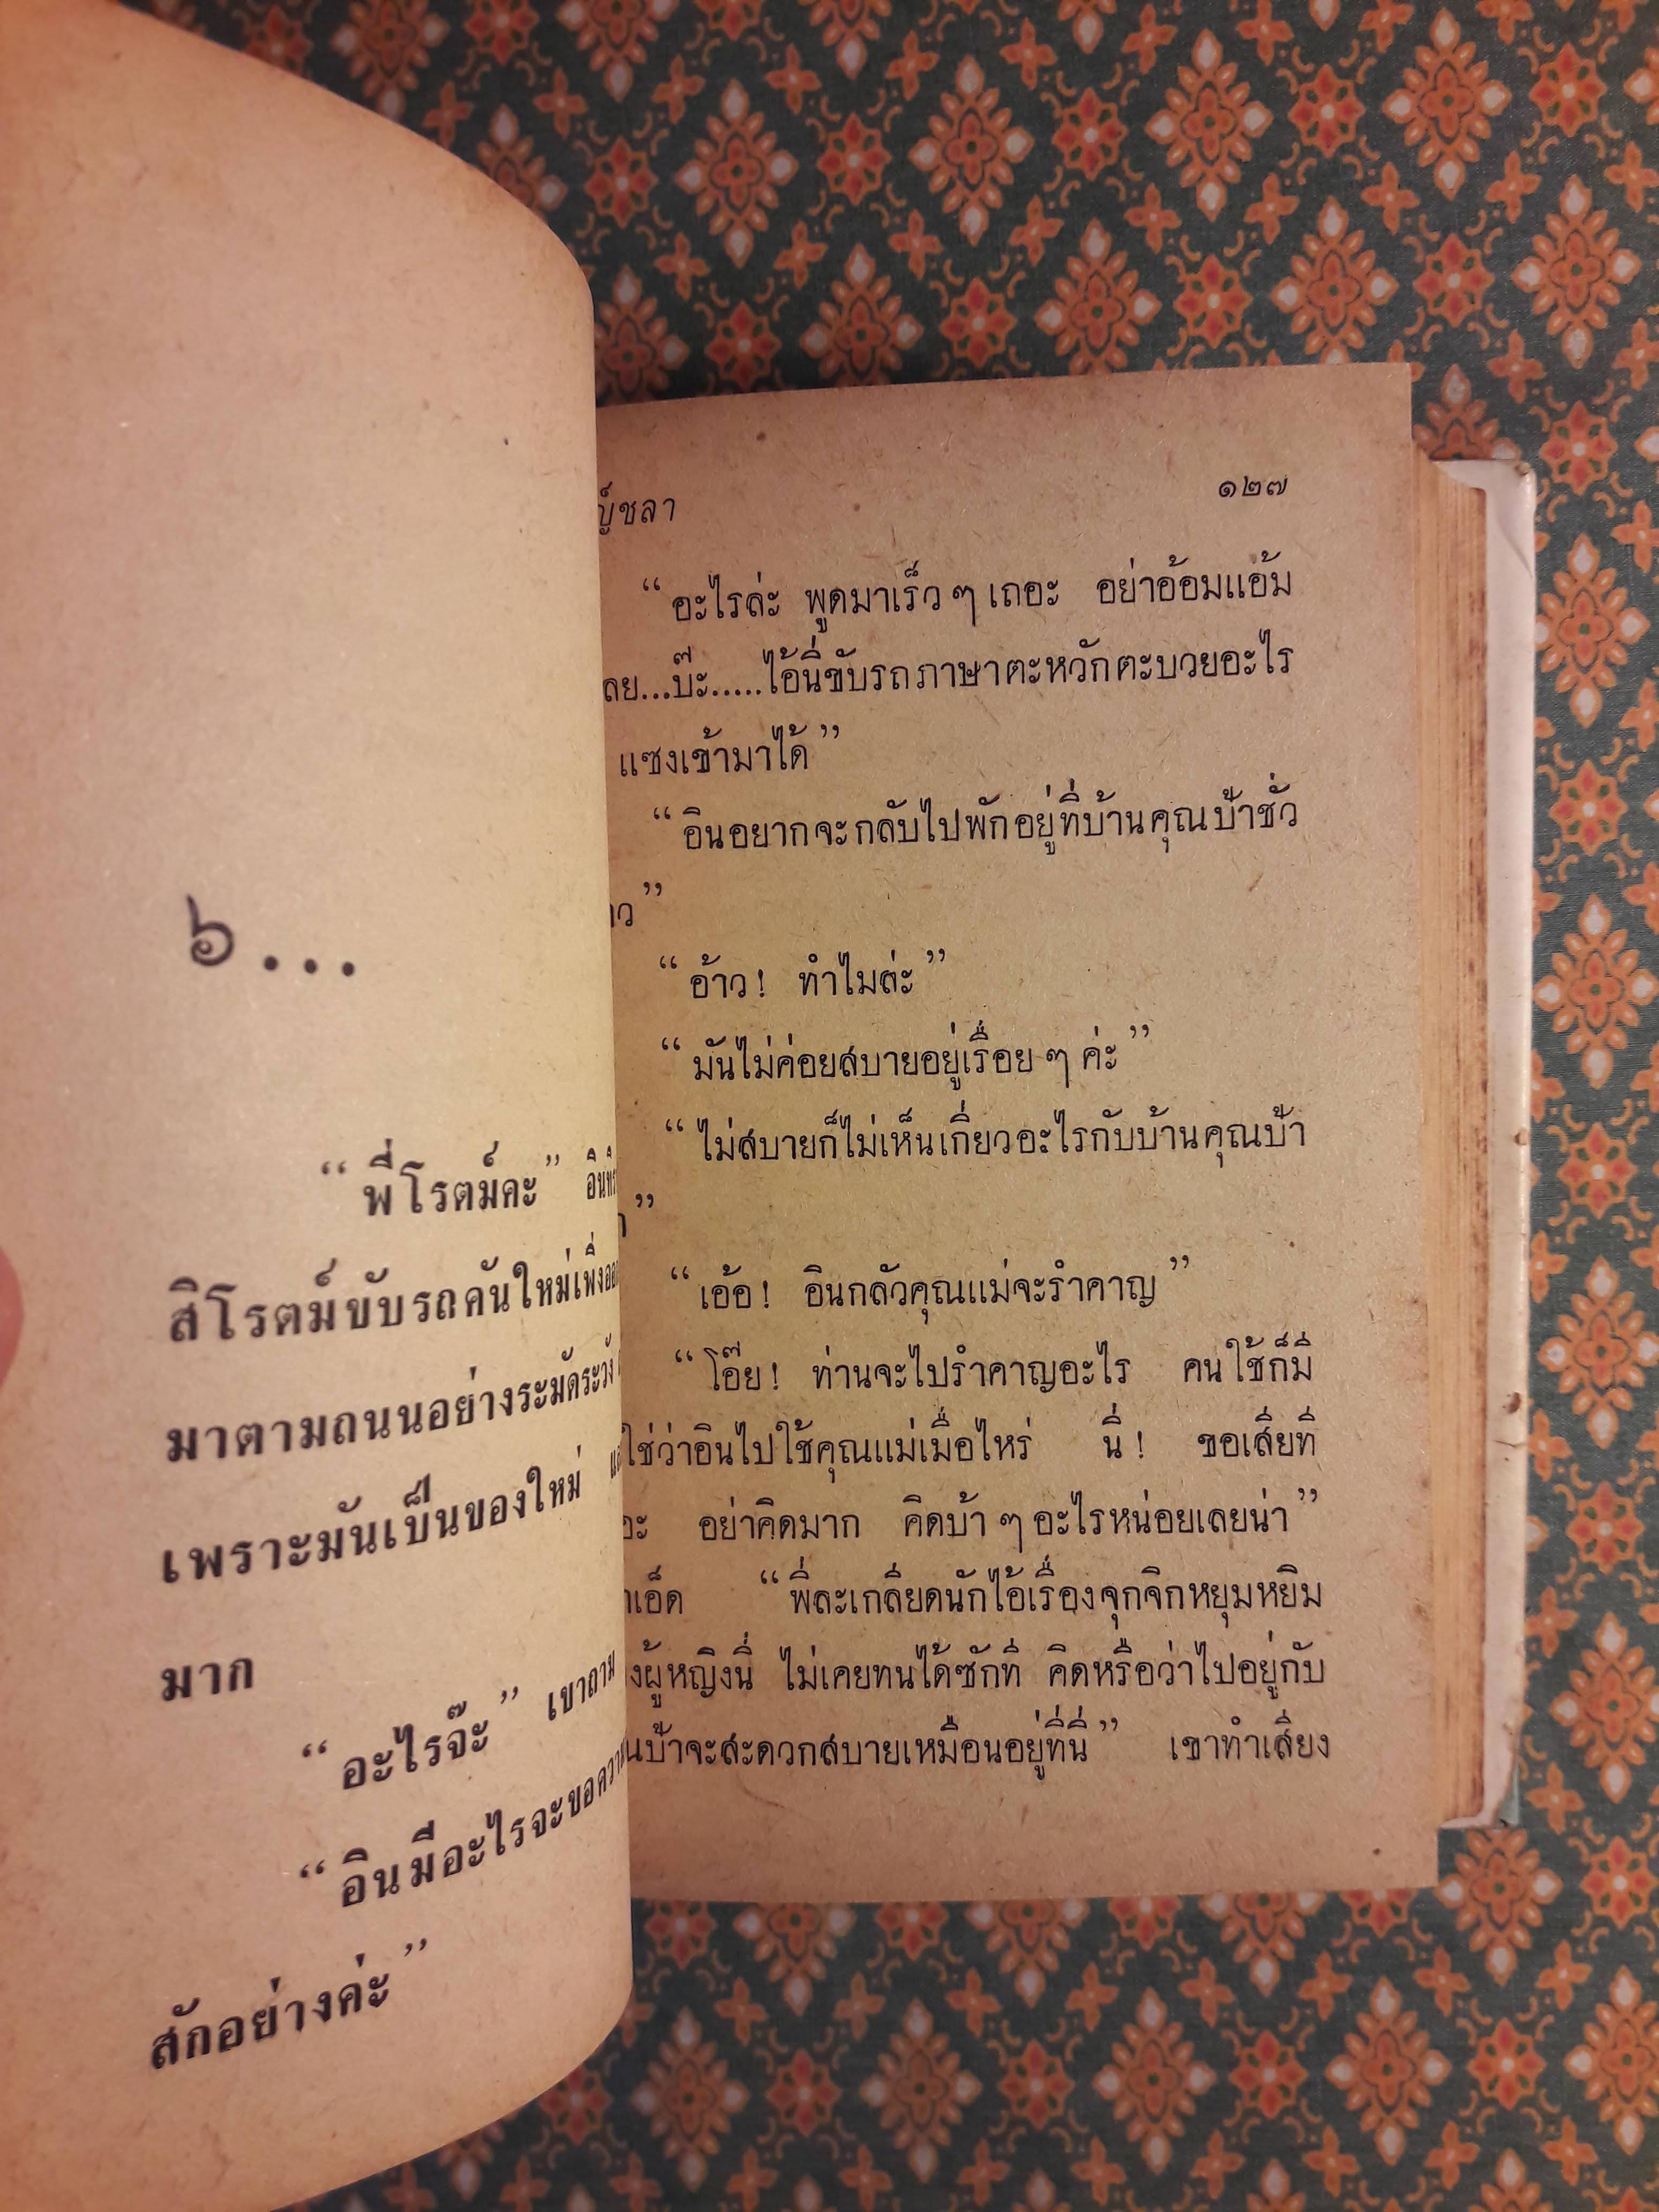 ๖...
“พี่โรตม์คะ”
สิโรตม์ขับรถคันใหม่เพิ่ง
มาตามถนนอย่างระมัดระวัง
เพราะมันเป็นของใหม่
มาก
“อะไรจ๊ะ” เขาถาม
“อินมีอะไรจะขอความ
สักอย่างค่ะ”
๑๒๗
“อะไรล่ะ พูดมาเร็วๆ เถอะ อย่าอ้อมแอ้ม
...บ๊ะ.....ไอ้นี่ขับรถภาษาตะหวักตะบวยอะไร
แซงเข้ามาได้”
“อินอยากจะกลับไปพักอยู่ที่บ้านคุณป้าชั่ว
”
“อ้าว! ทำไมล่ะ”
“มันไม่ค่อยสบายอยู่เรื่อยๆ ค่ะ”
“ไม่สบายก็ไม่เห็นเกี่ยวอะไรกับบ้านคุณป้า
”
“เอ้อ! อินกลัวคุณแม่จะรำคาญ”
“โอ๊ย! ท่านจะไปรำคาญอะไร คนใช้ก็มี
ใช่ว่าอินไปใช้คุณแม่เมื่อไหร่ นี่! ขอเสียที
อย่าคิดมาก คิดบ้าๆ อะไรหน่อยเลยน่า”
“พี่ละเกลียดนักไอ้เรื่องจุกจิกหยุมหยิม
ผู้หญิงนี่ ไม่เคยทนได้ซักที คิดหรือว่าไปอยู่กับ
ป้าจะสะดวกสบายเหมือนอยู่ที่นี่” เขาทำเสียง